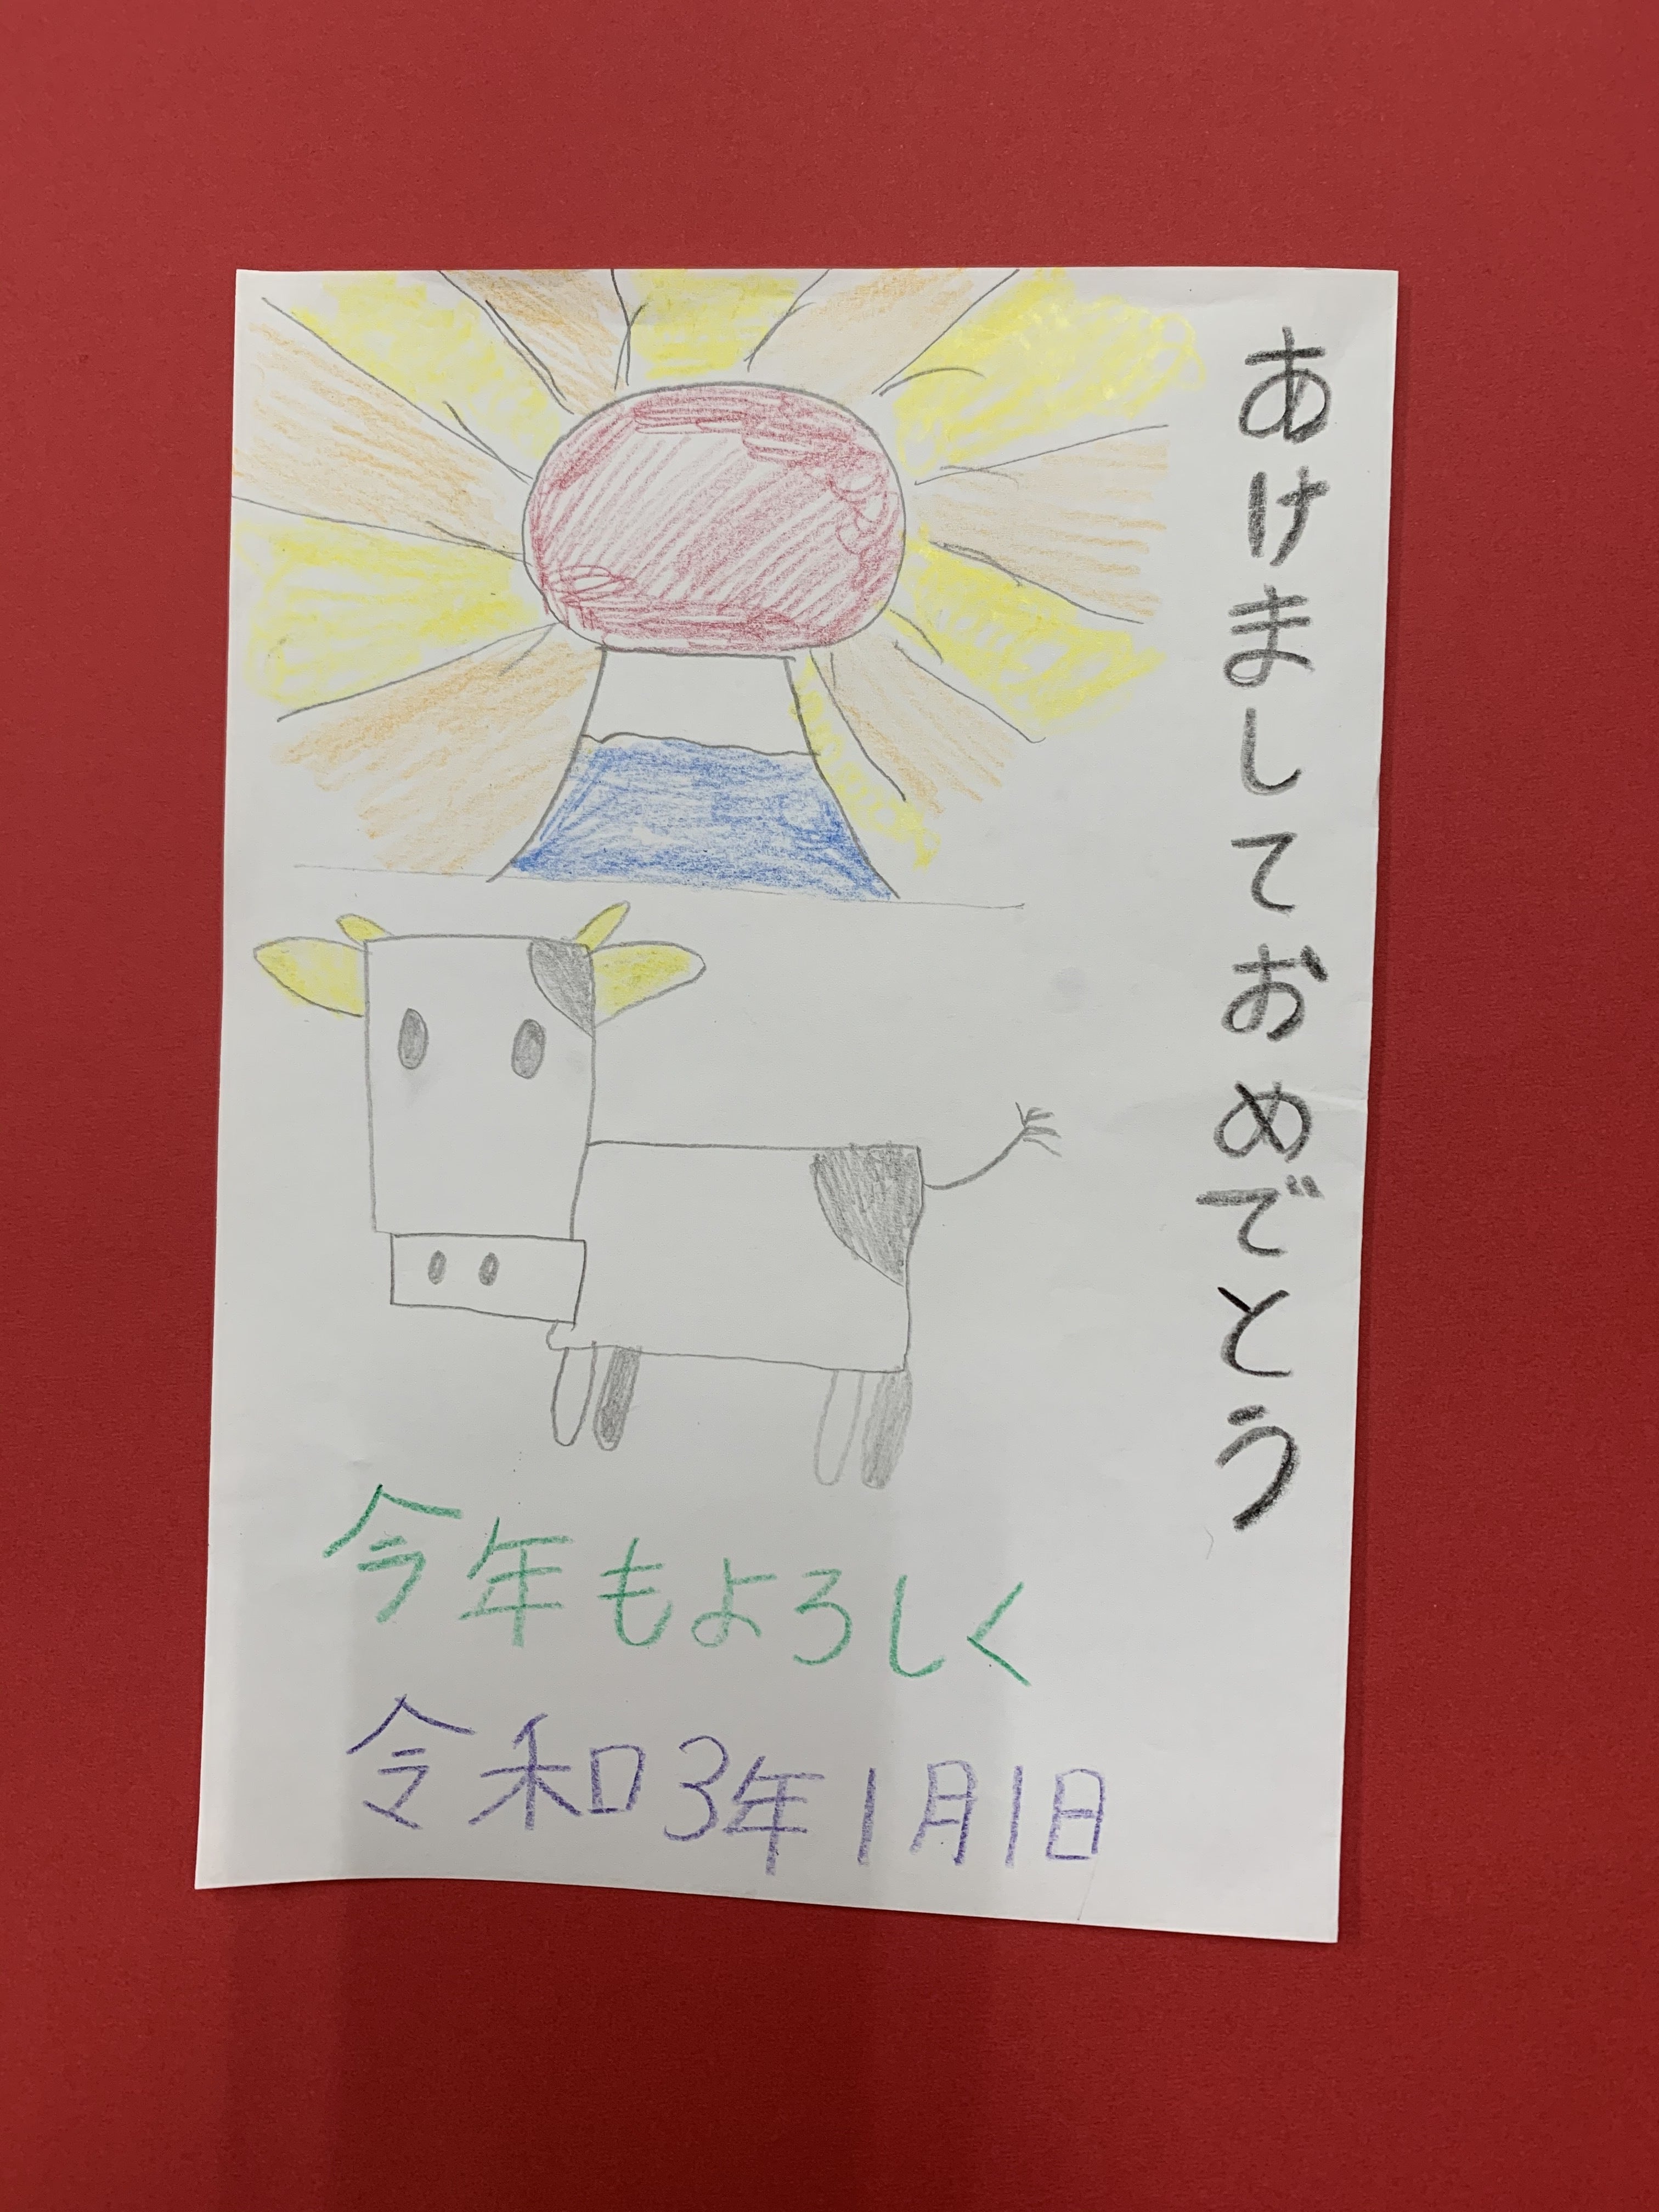 あけましておめでとう
今年もよろしく
令和3年1月1日